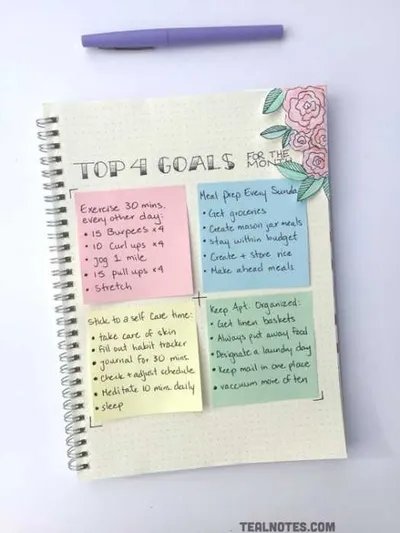 TOP 4 GOALS
FOR THE
MONTH
Exercise 30 mins.
every other day:
• 15 Burpees x4
• 10 Curl ups x4
• jog 1 mile
• 15 pull ups x4
• Stretch
Meal Prep Every Sunday
• Get groceries
• Create mason jar meals
• stay within budget
• Create + store rice
• Make ahead meals
Stick to a self care time:
• take care of skin
• fill out habit tracker
• journal for 30 mins.
• Check + adjust schedule
• Meditate 10 mins. daily
• sleep
Keep Apt. Organized:
• Get linen baskets
• Always put away food
• Designate a laundry day
• Keep mail in one place
• vaccuum more often
TEALNOTES.COM